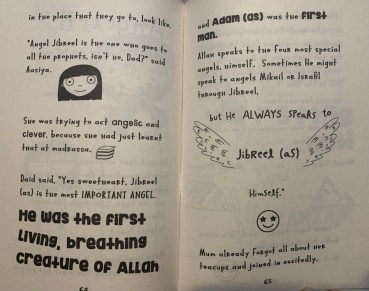 in the place that they go to, look like.
"Angel Jibreel is the one who goes to
all the prophets, isn't he, Dad?" said
Aasiya.
She was trying to act angelic and
clever, because she had just learnt
that at madrassa.
Dad said, "Yes sweetheart, Jibreel
(as) is the most IMPORTANT ANGEL.
He was the first
living, breathing
creature of Allah
64
and Adam (as) was the first
man.
Allah speaks to the four most special
angels, Himself. Sometimes He might
speak to angels Mikail or Israfil
through Jibreel,
but He ALWAYS speaks to
Jibreel (as)
Himself."
Mum already forgot all about her
teacups and joined in excitedly.
65